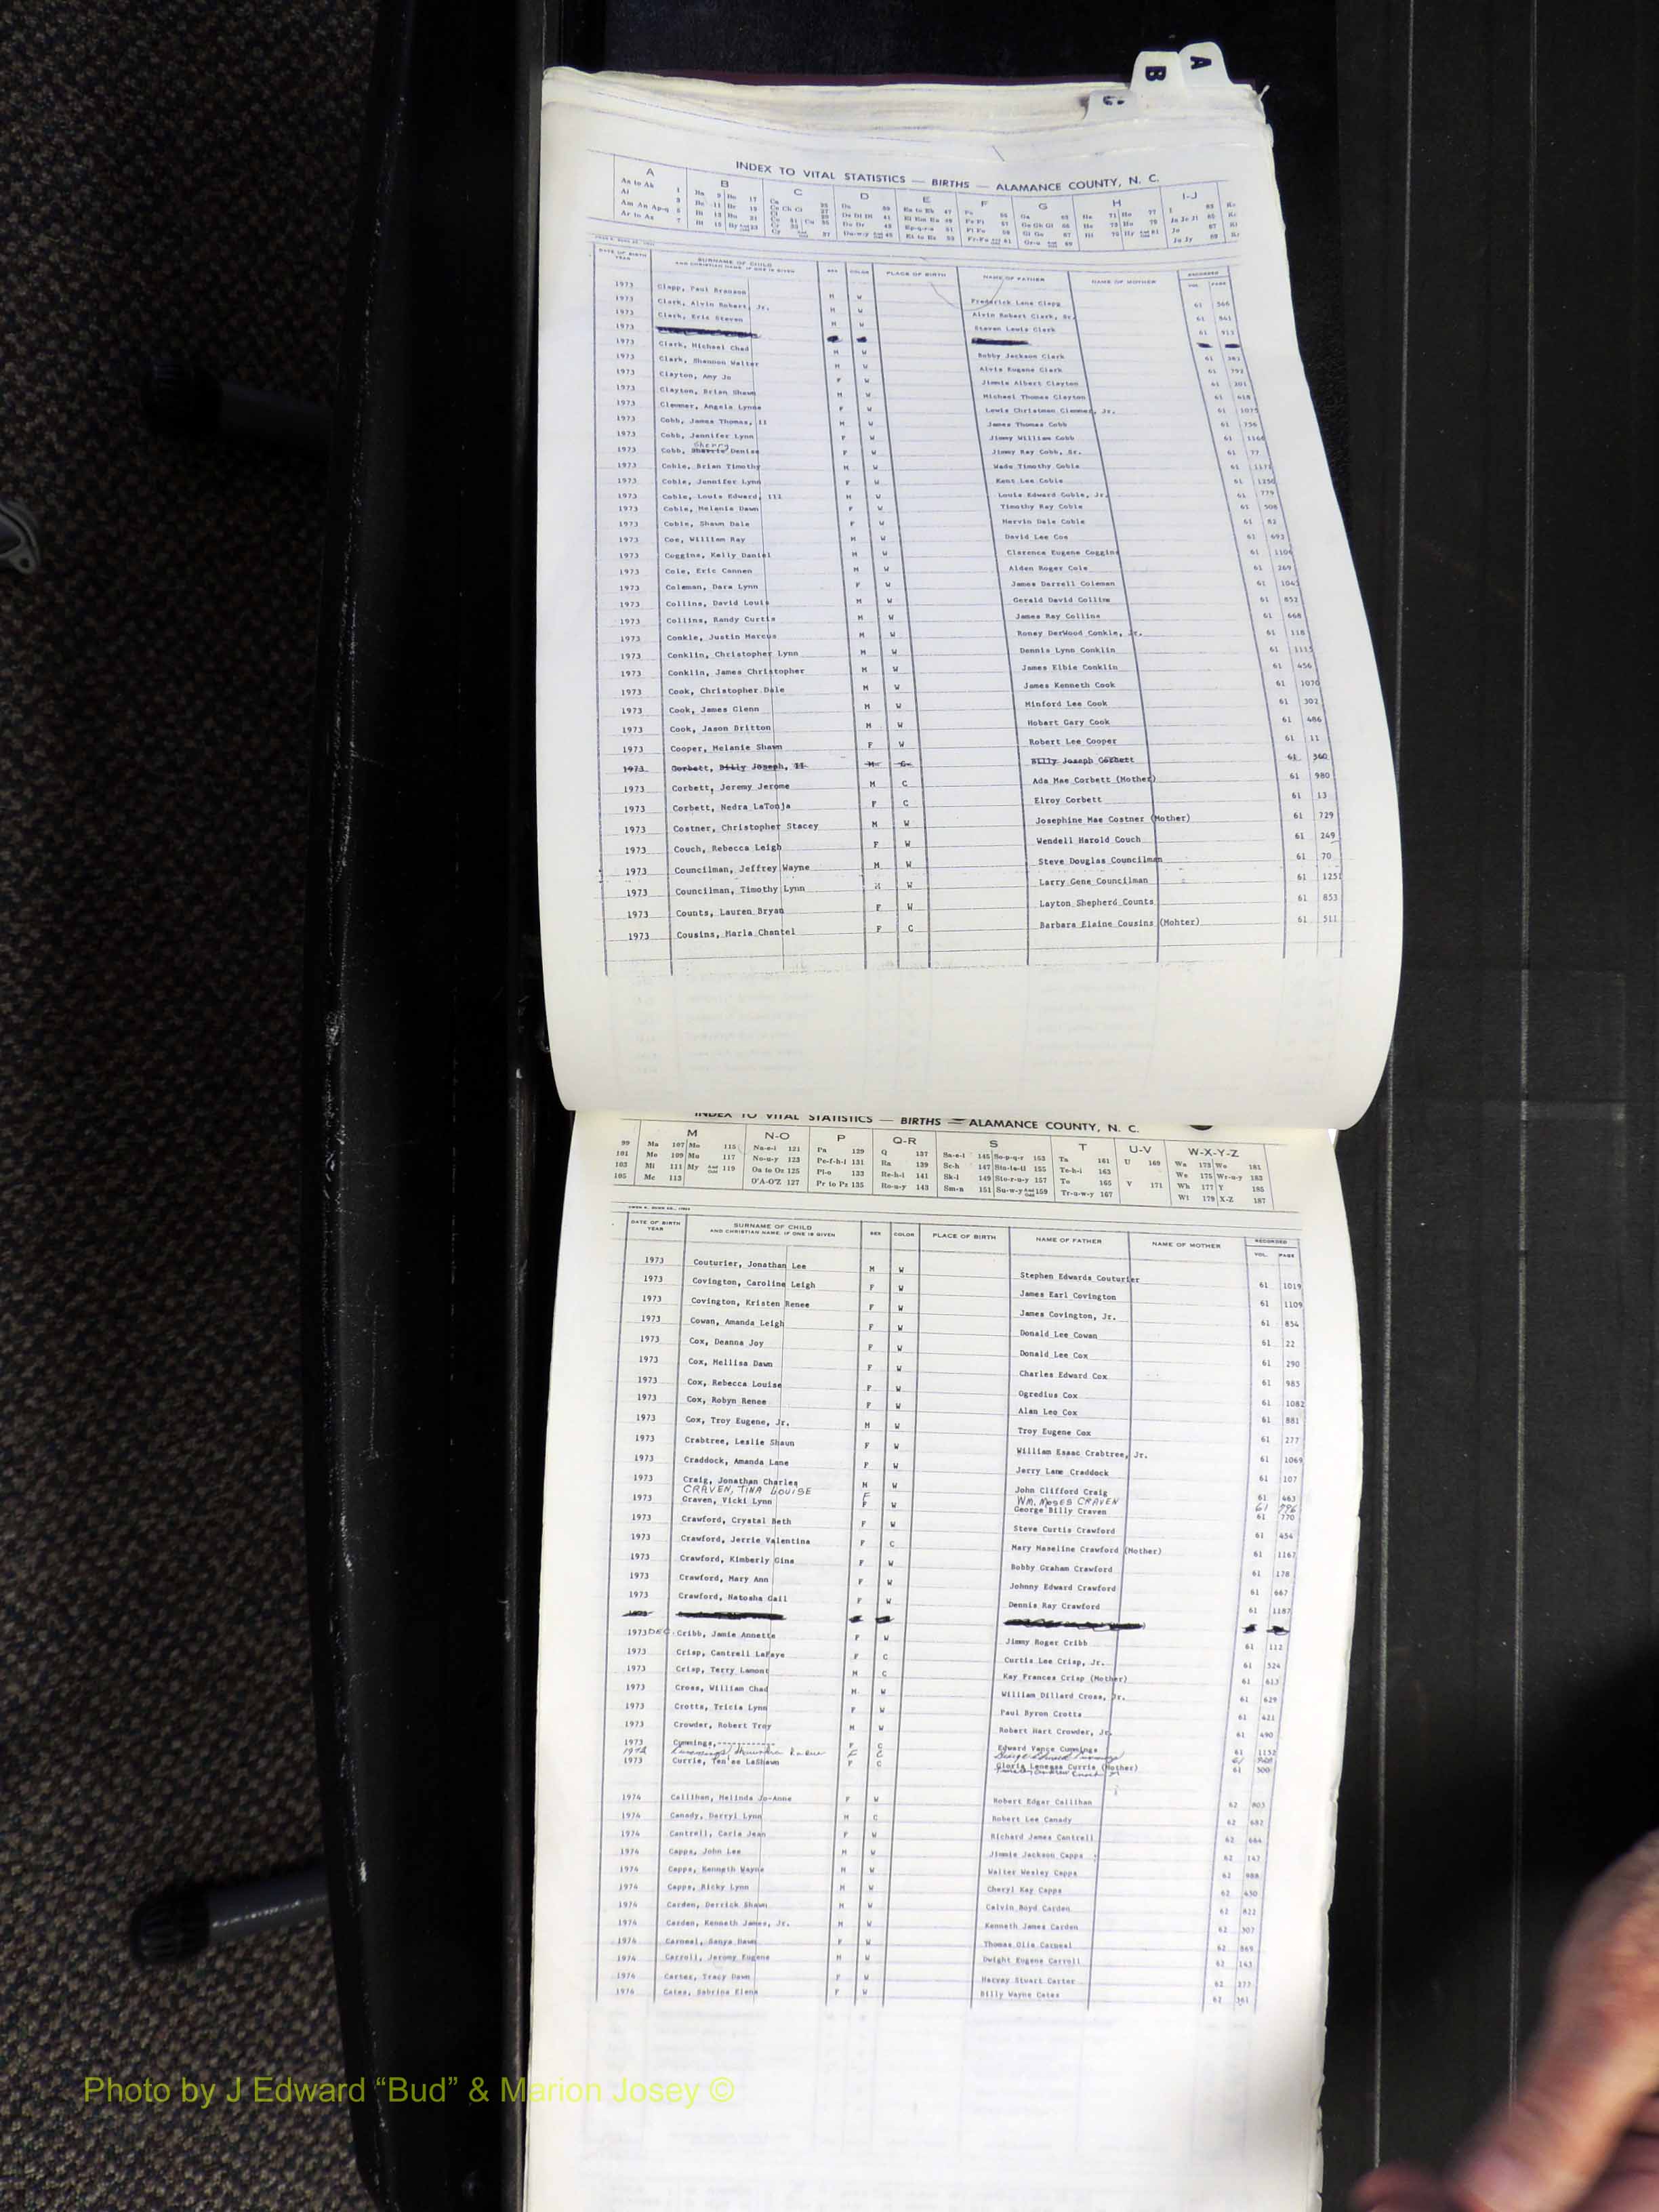 A
B
C
INDEX TO VITAL STATISTICS — BIRTHS — ALAMANCE COUNTY, N. C.
A B C D E F G H I-J
DATE OF BIRTH YEAR SURNAME OF CHILD AND CHRISTIAN NAME, IF ONE IS GIVEN SEX COLOR PLACE OF BIRTH NAME OF FATHER NAME OF MOTHER RECORDED VOL. PAGE
1973 Clapp, Paul Branson M W Frederick Lane Clapp 61 566
1973 Clark, Alvin Robert, Jr. M W Alvin Robert Clark, Sr. 61 841
1973 Clark, Eric Steven M W Steven Lewis Clark 61 913
1973
1973 Clark, Michael Chad M W Bobby Jackson Clark 61
1973 Clark, Shannon Walter M W Alvis Eugene Clark 61 792
1973 Clayton, Amy Jo F W Jimmie Albert Clayton 61 201
1973 Clayton, Brian Shawn M W Michael Thomas Clayton 61 618
1973 Clemmer, Angela Lynne F W Lewis Christmon Clemmer, Jr. 61 1075
1973 Cobb, James Thomas, II M W James Thomas Cobb 61 756
1973 Cobb, Jennifer Lynn F W Jimmy William Cobb 61 1166
Sherry
1973 Cobb, Denise F W Jimmy Ray Cobb, Sr. 61 77
1973 Coble, Brian Timothy M W Wade Timothy Coble 61 1171
1973 Coble, Jennifer Lynn F W Kent Lee Coble 61 1250
1973 Coble, Louis Edward, III M W Louis Edward Coble, Jr. 61 779
1973 Coble, Melanie Dawn F W Timothy Ray Coble 61 508
1973 Coble, Shawn Dale F W Marvin Dale Coble 61 82
1973 Coe, William Ray M W David Lee Coe 61 692
1973 Coggins, Kelly Daniel M W Clarence Eugene Coggins 61 1106
1973 Cole, Eric Cannen M W Alden Roger Cole 61 269
1973 Coleman, Dara Lynn F W James Darrell Coleman 61 1042
1973 Collins, David Louis M W Gerald David Collins 61 852
1973 Collins, Randy Curtis M W James Ray Collins 61 668
1973 Conkle, Justin Marcus M W Roney DerWood Conkle, Jr. 61 118
1973 Conklin, Christopher Lynn M W Dennis Lynn Conklin 61 1115
1973 Conklin, James Christopher M W James Elbie Conklin 61 456
1973 Cook, Christopher Dale M W James Kenneth Cook 61 1070
1973 Cook, James Glenn M W Minford Lee Cook 61 302
1973 Cook, Jason Britton M W Hobart Gary Cook 61 486
1973 Cooper, Melanie Shawn F W Robert Lee Cooper 61 11
1973 Corbett, Billy Joseph, II M C Billy Joseph Corbett 61 360
1973 Corbett, Jeremy Jerome M C Ada Mae Corbett (Mother) 61 980
1973 Corbett, Nedra LaTonja F C Elroy Corbett 61 13
1973 Costner, Christopher Stacey M W Josephine Mae Costner (Mother) 61 729
1973 Couch, Rebecca Leigh F W Wendell Harold Couch 61 249
1973 Councilman, Jeffrey Wayne M W Steve Douglas Councilman 61 70
1973 Councilman, Timothy Lynn M W Larry Gene Councilman 61 1251
1973 Counts, Lauren Bryan F W Layton Shepherd Counts 61 853
1973 Cousins, Marla Chantel F C Barbara Elaine Cousins (Mohter) 61 511
INDEX TO VITAL STATISTICS — BIRTHS — ALAMANCE COUNTY, N. C.
M N-O P Q-R S T U-V W-X-Y-Z
99 Ma 107 Mo 115 Na-e-i 121 Pa 129 Q 137 Sa-e-i 145 So-p-q-r 153 Ta 161 U 169 Wa 173 Wo 181
101 Me 109 Mu 117 No-u-y 123 Pe-f-h-i 131 Ra 139 Sc-h 147 Sta-te-ti 155 Te-h-i 163 We 175 Wr-u-y 183
103 Mi 111 My And Odd 119 Oa to Oz 125 Pl-o 133 Re-h-i 141 Sk-l 149 Sto-r-u-y 157 To 165 V 171 Wh 177 Y 185
105 Mc 113 O'A-O'Z 127 Pr to Pz 135 Ro-u-y 143 Sm-n 151 Su-w-y And Odd 159 Tr-u-w-y 167 Wi 179 X-Z 187
DATE OF BIRTH YEAR SURNAME OF CHILD AND CHRISTIAN NAME, IF ONE IS GIVEN SEX COLOR PLACE OF BIRTH NAME OF FATHER NAME OF MOTHER RECORDED VOL. PAGE
1973 Couturier, Jonathan Lee M W Stephen Edwards Couturier 61 1019
1973 Covington, Caroline Leigh F W James Earl Covington 61 1109
1973 Covington, Kristen Renee F W James Covington, Jr. 61 854
1973 Cowan, Amanda Leigh F W Donald Lee Cowan 61 22
1973 Cox, Deanna Joy F W Donald Lee Cox 61 290
1973 Cox, Mellisa Dawn F W Charles Edward Cox 61 985
1973 Cox, Rebecca Louise F W Ogredius Cox 61 1082
1973 Cox, Robyn Renee F W Alan Leo Cox 61 881
1973 Cox, Troy Eugene, Jr. M W Troy Eugene Cox 61 277
1973 Crabtree, Leslie Shaun F W William Esaac Crabtree, Jr. 61 1069
1973 Craddock, Amanda Lane F W Jerry Lane Craddock 61 107
1973 Craig, Jonathan Charles M W John Clifford Craig 61 463
CRAVEN, TINA LOUISE F WM. MOSES CRAVEN 61 796
1973 Craven, Vicki Lynn F W George Billy Craven 61 770
1973 Crawford, Crystal Beth F W Steve Curtis Crawford 61 454
1973 Crawford, Jerrie Valentina F C Mary Naseline Crawford (Mother) 61 1162
1973 Crawford, Kimberly Gina F W Bobby Graham Crawford 61 178
1973 Crawford, Mary Ann F W Johnny Edward Crawford 61 667
1973 Crawford, Natosha Gail F W Dennis Ray Crawford 61 1187
1973 DEC. Cribb, Jamie Annette F W Jimmy Roger Cribb 61 112
1973 Crisp, Cantrell LaFaye F C Curtis Lee Crisp, Jr. 61 524
1973 Crisp, Terry Lamont M C Kay Frances Crisp (Mother) 61 613
1973 Cross, William Chad M W William Dillard Cross, Jr. 61 629
1973 Crotts, Tricia Lynn F W Paul Byron Crotts 61 421
1973 Crowder, Robert Troy M W Robert Hart Crowder, Jr. 61 490
1973 Cummings,------------ F C Edward Vance Cummings 61 1152
Cummings F C George Edward Cummings 61
1973 Currie, Ten'ee LaShawn F C Gloria Lenessa Currie (Mother) 61 500
1974 Callihan, Melinda Jo-Anne F W Robert Edgar Callihan 62 803
1974 Canady, Darryl Lynn M C Robert Lee Canady 62 682
1974 Cantrell, Carla Jean F W Richard James Cantrell 62 664
1974 Capps, John Lee M W Jimmie Jackson Capps 62 147
1974 Capps, Kenneth Wayne M W Walter Wesley Capps 62 988
1974 Capps, Ricky Lynn M W Cheryl Kay Capps 62 450
1974 Carden, Derrick Shawn M W Calvin Boyd Carden 62 822
1974 Carden, Kenneth James, Jr. M W Kenneth James Carden 62 307
1974 Carneal, Sonya Dawn F W Thomas Olie Carneal 62 869
1974 Carroll, Jeromy Eugene M W Dwight Eugene Carroll 62 143
1974 Carter, Tracy Dawn F W Harvey Stuart Carter 62 277
1974 Cates, Sabrina Elena F W Billy Wayne Cates 62 361
Photo by J Edward “Bud” & Marion Josey ©